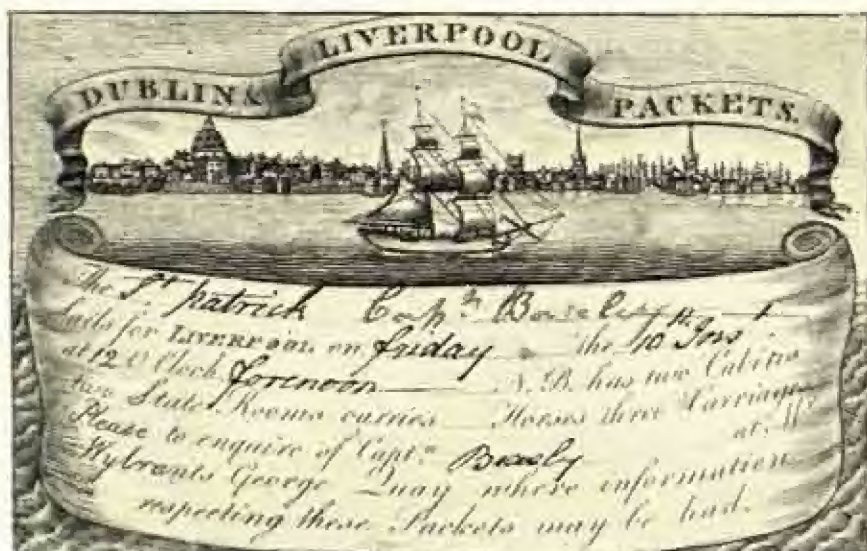 DUBLIN & LIVERPOOL PACKETS.
The St Patrick Capn
Sails for LIVERPOOL on friday the 10th Inst
at 12 O'Clock forenoon N.B. has two Cabins
two State Rooms carries Horses three Carriages
Please to enquire of Captn. at Mr
Wybrants George Quay where information
respecting these Packets may be had.